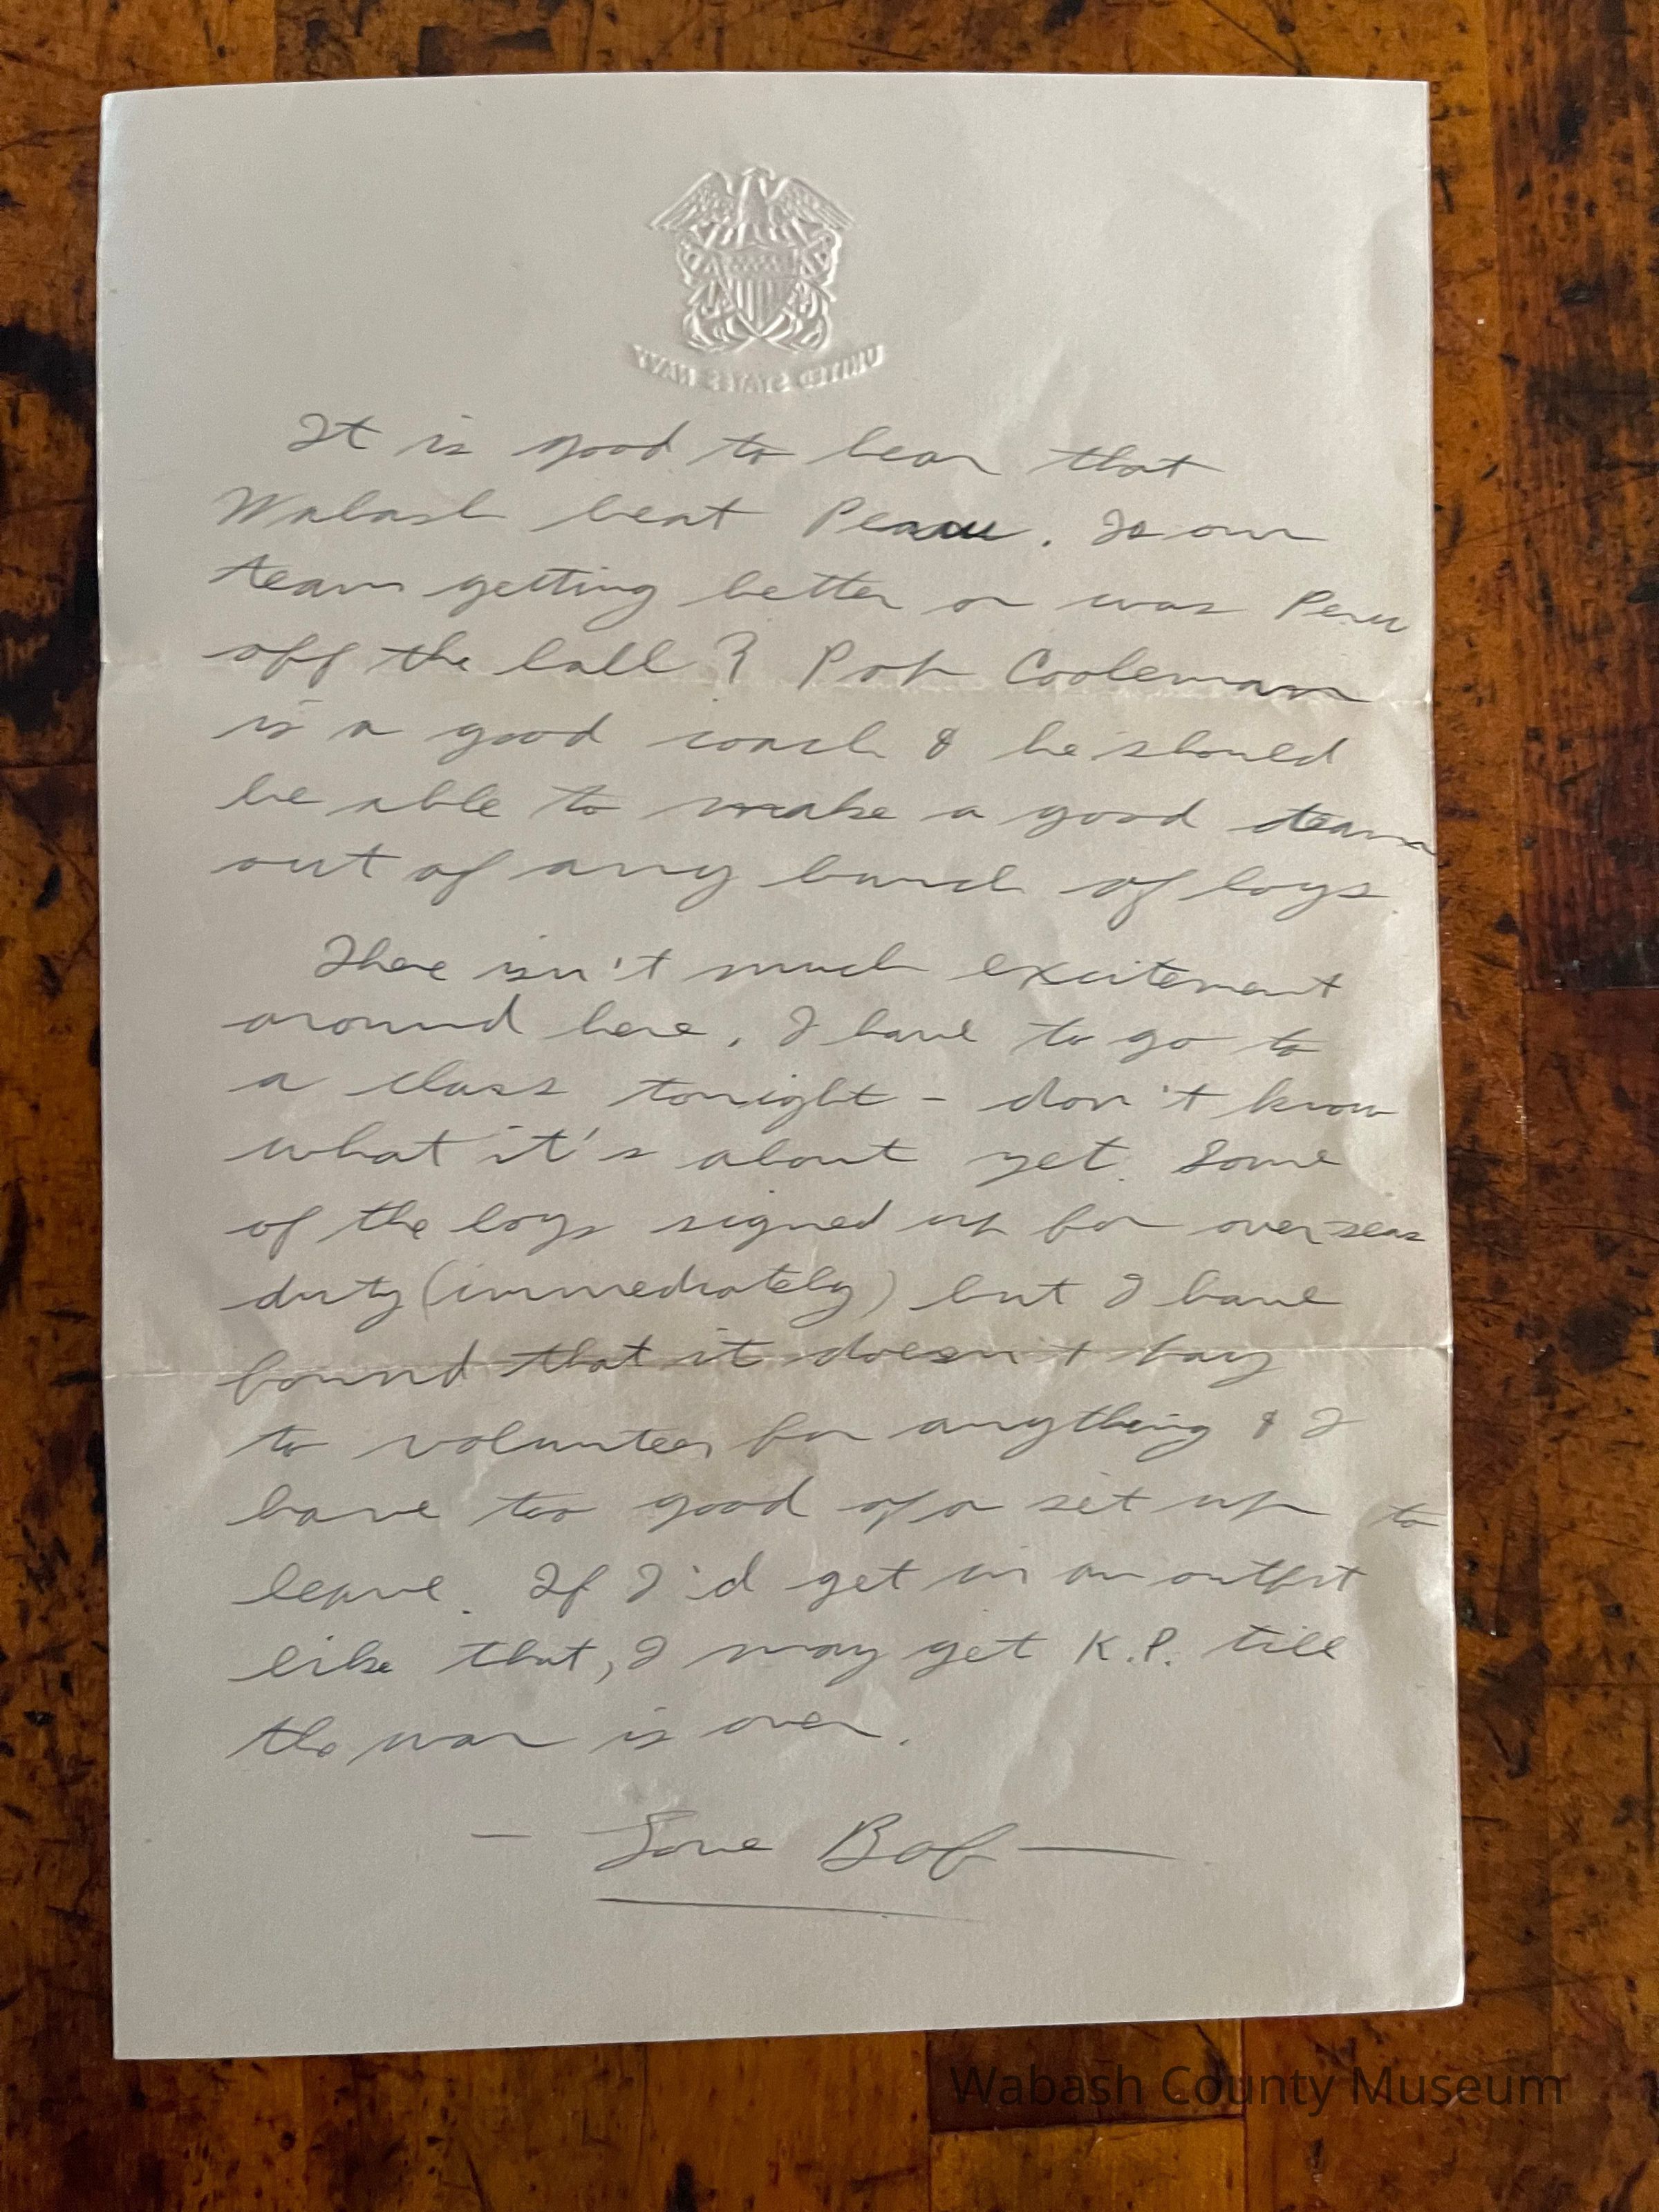 UNITED STATES NAVY
It is good to hear that
Wabash beat Peru. Is our
team getting better or was Peru
off the ball? Pop Cooleman
is a good coach & he should
be able to make a good team
out of any bunch of boys
There isn't much excitement
around here. I have to go to
a class tonight - don't know
what it's about yet. Some
of the boys signed up for overseas
duty (immediately) but I have
found that it doesn't pay
to volunteer for anything & I
have too good of a set up to
leave. If I'd get in an outfit
like that, I may get K.P. till
the war is over.
- Love Bob -
Wabash County Museum